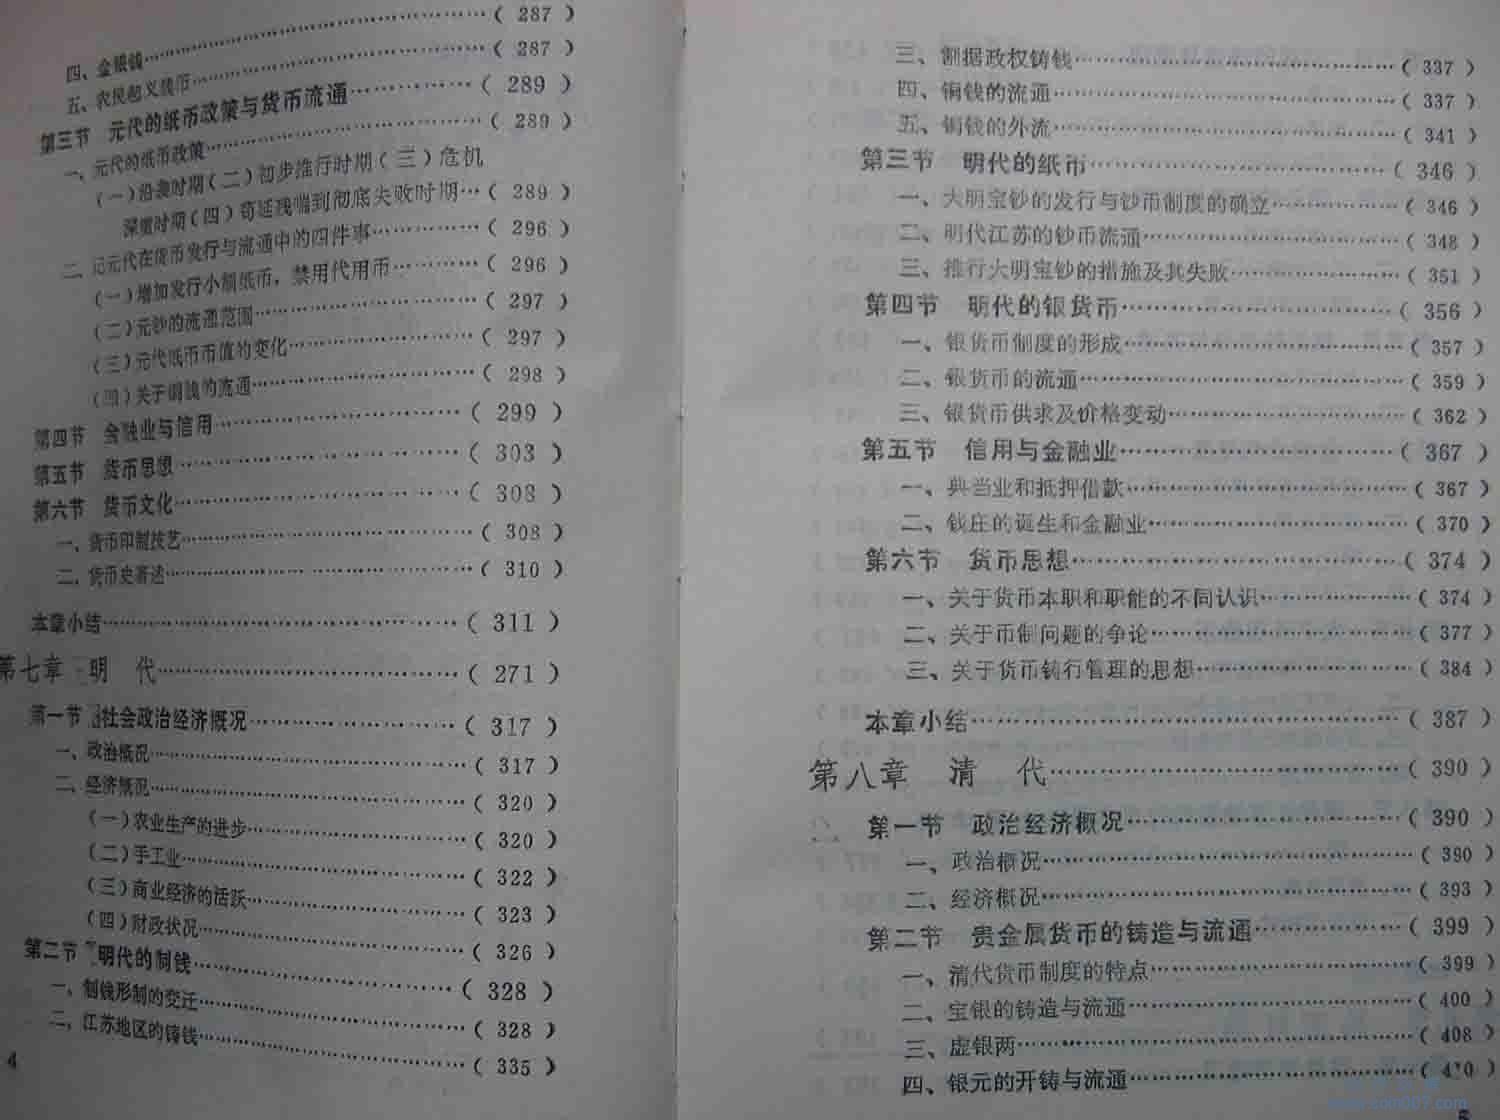 ……( 287 )
四、金银钱……( 287 )
五、农民起义钱币……( 289 )
第三节 元代的纸币政策与货币流通……( 289 )
一、元代的纸币政策
(一)沿袭时期(二)初步推行时期(三)危机
深重时期(四)苟延残喘到彻底失败时期…( 289 )
二、记元代在货币发行与流通中的四件事……( 296 )
(一)增加发行小额纸币，禁用代用币……( 296 )
(二)元钞的流通范围……( 297 )
(三)元代纸币币值的变化……( 297 )
(四)关于铜钱的流通……( 298 )
第四节 金融业与信用……( 299 )
第五节 货币思想……( 303 )
第六节 货币文化……( 308 )
一、货币印制技艺……( 308 )
二、货币史著述……( 310 )
本章小结……( 311 )
第七章 明 代……( 271 )
第一节 社会政治经济概况……( 317 )
一、政治概况……( 317 )
二、经济概况……( 320 )
(一)农业生产的进步……( 320 )
(二)手工业……( 322 )
(三)商业经济的活跃……( 323 )
(四)财政状况……( 326 )
第二节 明代的制钱……( 328 )
一、制钱形制的变迁……( 328 )
二、江苏地区的铸钱……( 335 )
4
三、割据政权铸钱……( 337 )
四、铜钱的流通……( 337 )
五、铜钱的外流……( 341 )
第三节 明代的纸币……( 346 )
一、大明宝钞的发行与钞币制度的确立……( 346 )
二、明代江苏的钞币流通……( 348 )
三、推行大明宝钞的措施及其失败……( 351 )
第四节 明代的银货币……( 356 )
一、银货币制度的形成……( 357 )
二、银货币的流通……( 359 )
三、银货币供求及价格变动……( 362 )
第五节 信用与金融业……( 367 )
一、典当业和抵押借款……( 367 )
二、钱庄的诞生和金融业……( 370 )
第六节 货币思想……( 374 )
一、关于货币本职和职能的不同认识……( 374 )
二、关于币制问题的争论……( 377 )
三、关于货币铸行管理的思想……( 384 )
本章小结……( 387 )
第八章 清 代……( 390 )
第一节 政治经济概况……( 390 )
一、政治概况……( 390 )
二、经济概况……( 393 )
第二节 贵金属货币的铸造与流通……( 399 )
一、清代货币制度的特点……( 399 )
二、宝银的铸造与流通……( 400 )
三、虚银两……( 408 )
四、银元的开铸与流通……( 410 )
5